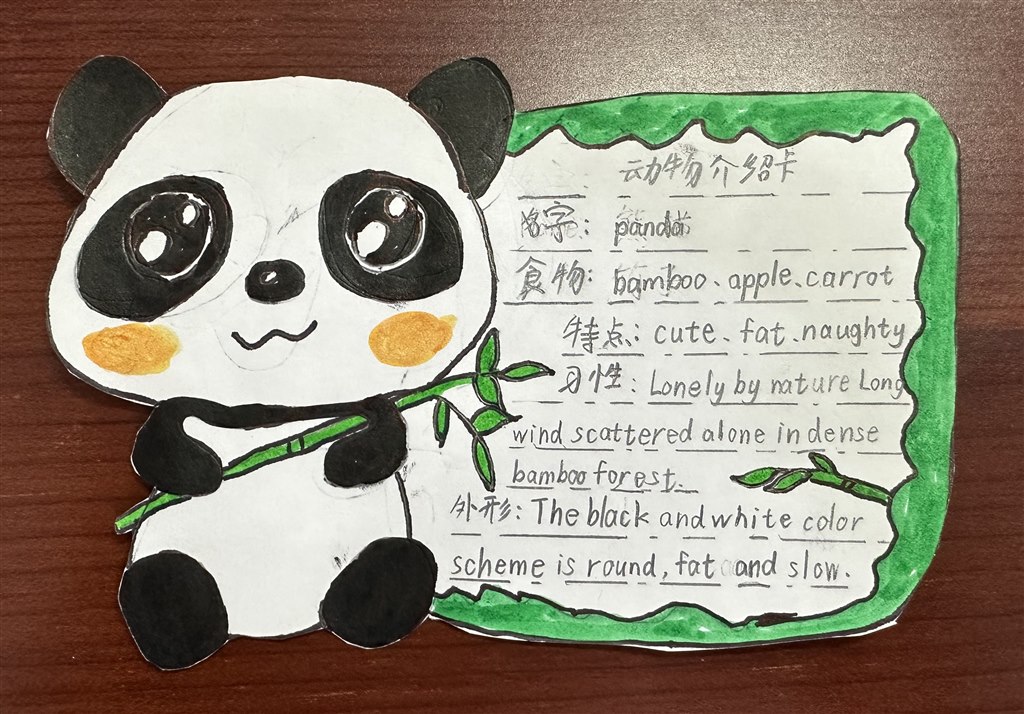 动物介绍卡
名字：panda
食物：bamboo、apple、carrot
特点：cute、fat、naughty
习性：Lonely by nature Long
wind scattered alone in dense
bamboo forest.
外形：The black and white color
scheme is round, fat and slow.